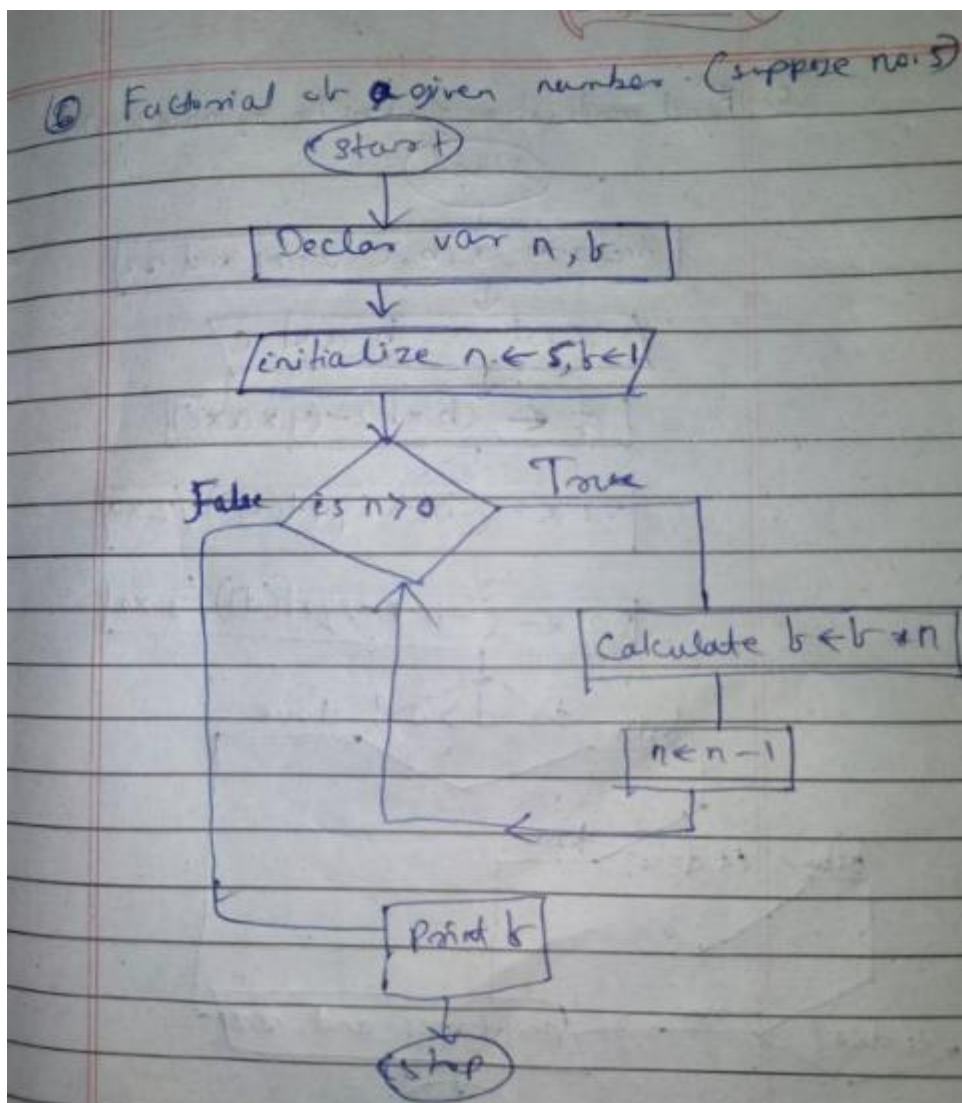 ⑥ Factorial of a given number. (suppose no. 5)
start
Declar var n, f
initialize n ← 5, f ← 1
is n > 0
False
True
Calculate f ← f * n
n ← n - 1
Print f
stop